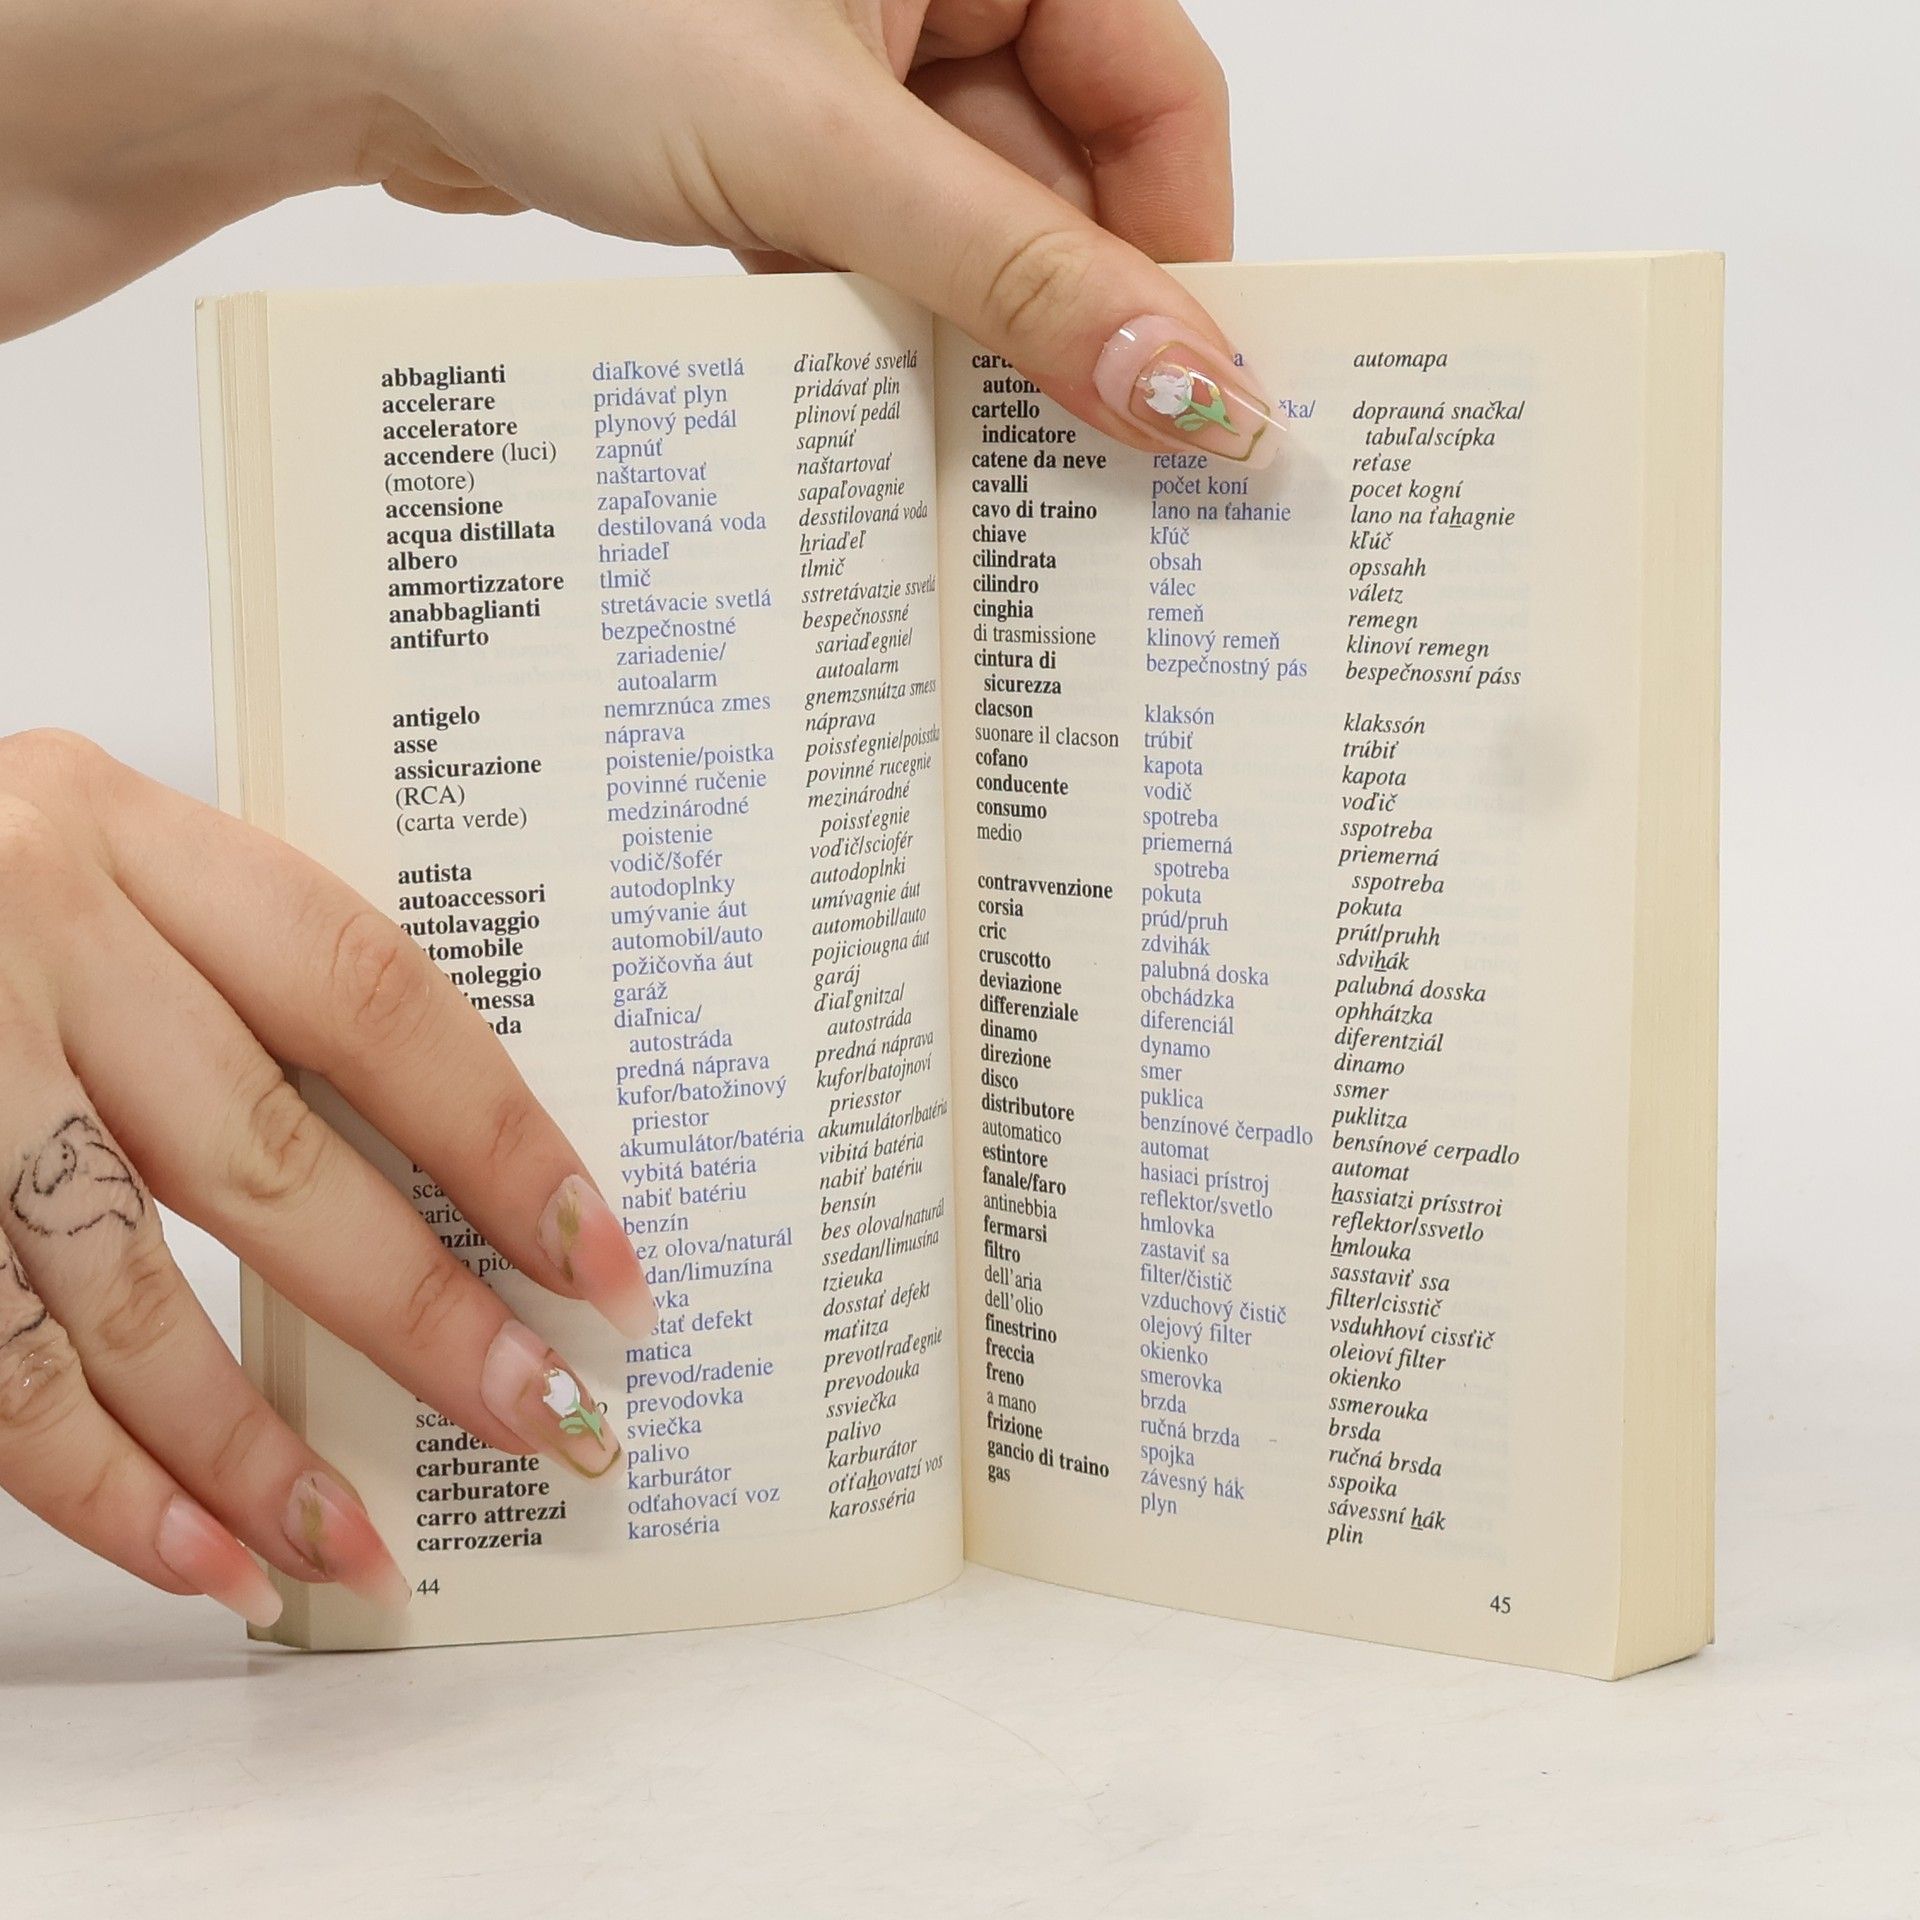 abbaglianti diaľkové svetlá ďiaľkové ssvetlá
accelerare pridávať plyn pridávať plin
acceleratore plynový pedál plinoví pedál
accendere (luci) zapnúť sapnúť
(motore) naštartovať naštartovať
accensione zapaľovanie sapaľovagnie
acqua distillata destilovaná voda desstilovaná voda
albero hriadeľ hriaďeľ
ammortizzatore tlmič tlmič
anabbaglianti stretávacie svetlá sstretávatzie ssvetlá
antifurto bezpečnostné bespečnossné
zariadenie/ sariaďegnie/
autoalarm autoalarm
antigelo nemrznúca zmes gnemzsnútza smess
asse náprava náprava
assicurazione poistenie/poistka poissťegnie/poisstka
(RCA) povinné ručenie povinné rucegnie
(carta verde) medzinárodné mezinárodné
poistenie poissťegnie
autista vodič/šofér voďič/sciofér
autoaccessori autodoplnky autodoplnki
autolavaggio umývanie áut umívagnie áut
automobil/auto automobil/auto
požičovňa áut pojiciougna áut
garáž garáj
diaľnica/ ďiaľgnitza/
autostráda autostráda
predná náprava predná náprava
kufor/batožinový kufor/batojnoví
priestor priesstor
akumulátor/batéria akumulátor/batéria
vybitá batéria vibitá batéria
nabiť batériu nabiť batériu
benzín bensín
olova/naturál bes olova/naturál
ssedan/limusína
tzieuka
defekt dosstať defekt
matica maťitza
prevod/radenie prevot/raďegnie
prevodovka prevodouka
sviečka ssviečka
palivo palivo
carburante karburátor karburátor
carburatore odťahovací voz oťťahovatzí vos
carro attrezzi karoséria karosséria
carrozzeria
44
automapa
cartello dopraună značka/
indicatore tabuľa/scípka
catene da neve reťaze reťase
cavalli počet koní pocet kogní
cavo di traino lano na ťahanie lano na ťahagnie
chiave kľúč kľúč
cilindrata obsah opssahh
cilindro válec váletz
cinghia remeň remegn
di trasmissione klinový remeň klinoví remegn
cintura di bezpečnostný pás bespečnossní páss
sicurezza
clacson klaksón klakssón
suonare il clacson trúbiť trúbiť
cofano kapota kapota
conducente vodič voďič
consumo spotreba sspotreba
medio priemerná priemerná
spotreba sspotreba
contravvenzione pokuta pokuta
corsia prúd/pruh prút/pruhh
cric zdvihák sdvihák
cruscotto palubná doska palubná dosska
deviazione obchádzka ophhátzka
differenziale diferenciál diferentziál
dinamo dynamo dinamo
direzione smer ssmer
disco puklica puklitza
distributore benzínové čerpadlo bensínové cerpadlo
automatico automat automat
estintore hasiaci prístroj hassiatzi prísstroi
fanale/faro reflektor/svetlo reflektor/ssvetlo
antinebbia hmlovka hmlouka
fermarsi zastaviť sa sasstaviť ssa
filtro filter/čistič filter/cisstič
dell'aria vzduchový čistič vsduhhoví cissťič
dell'olio olejový filter oleioví filter
finestrino okienko okienko
freccia smerovka ssmerouka
freno brzda brsda
a mano ručná brzda ručná brsda
frizione spojka sspoika
gancio di traino závesný hák sávessní hák
gas plyn plin
45